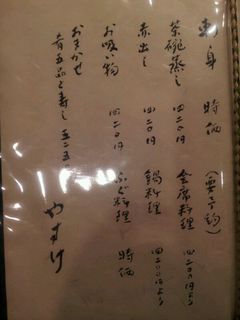 刺身 時価 (要予約)
茶碗蒸し 四二〇円 会席料理 四二〇〇円より
赤出し 四二〇円 鍋料理 四二〇〇円より
お吸い物 四二〇円 ふぐ料理 時価
おまかせ
肴五品と寿し 五二五〇
やすけ